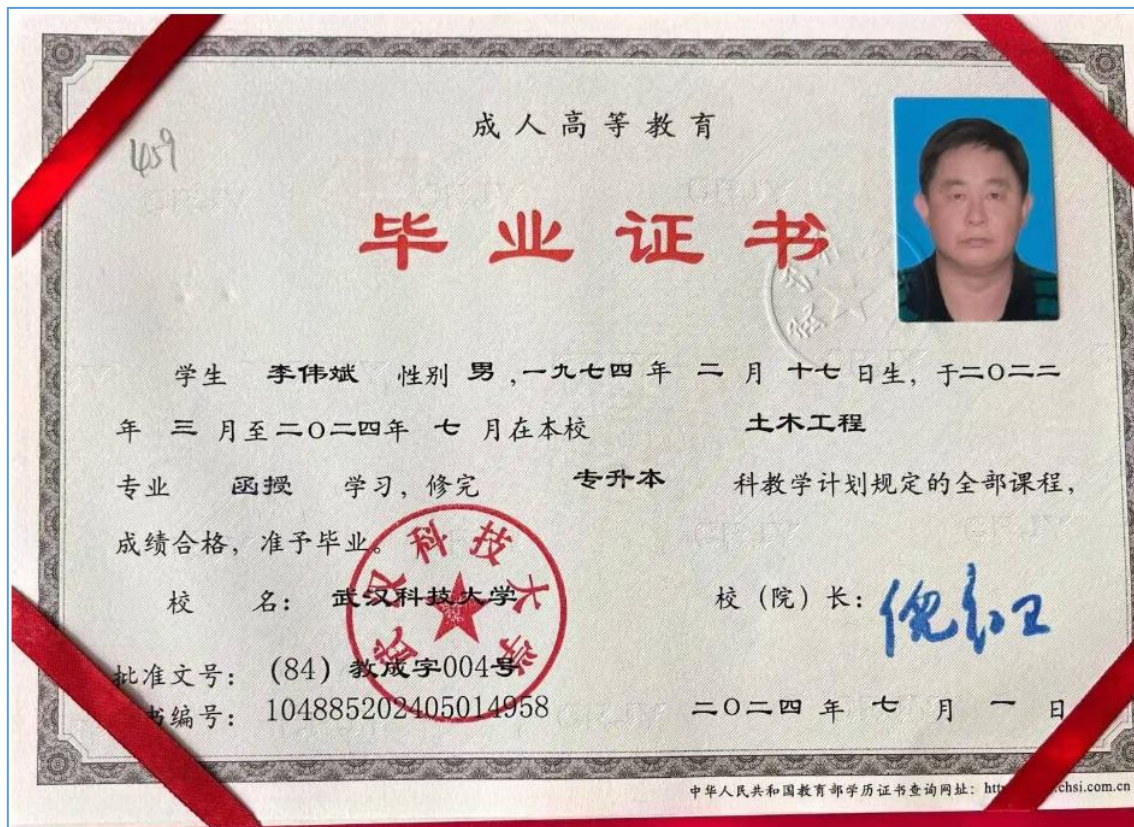 459
成人高等教育
毕业证书
学生 李伟斌 性别 男 ,一九七四 年 二 月 十七 日生, 于二〇二二
年 三 月至二〇二四年 七 月在本校 土木工程
专业 函授 学习, 修完 专升本 科教学计划规定的全部课程,
成绩合格, 准予毕业。
校 名: 武汉科技大学 校 (院) 长:
武汉科技大学
批准文号: (84) 教成字004号
书编号: 104885202405014958 二〇二四 年 七 月 一 日
中华人民共和国教育部学历证书查询网址: htt chsi.com.cn